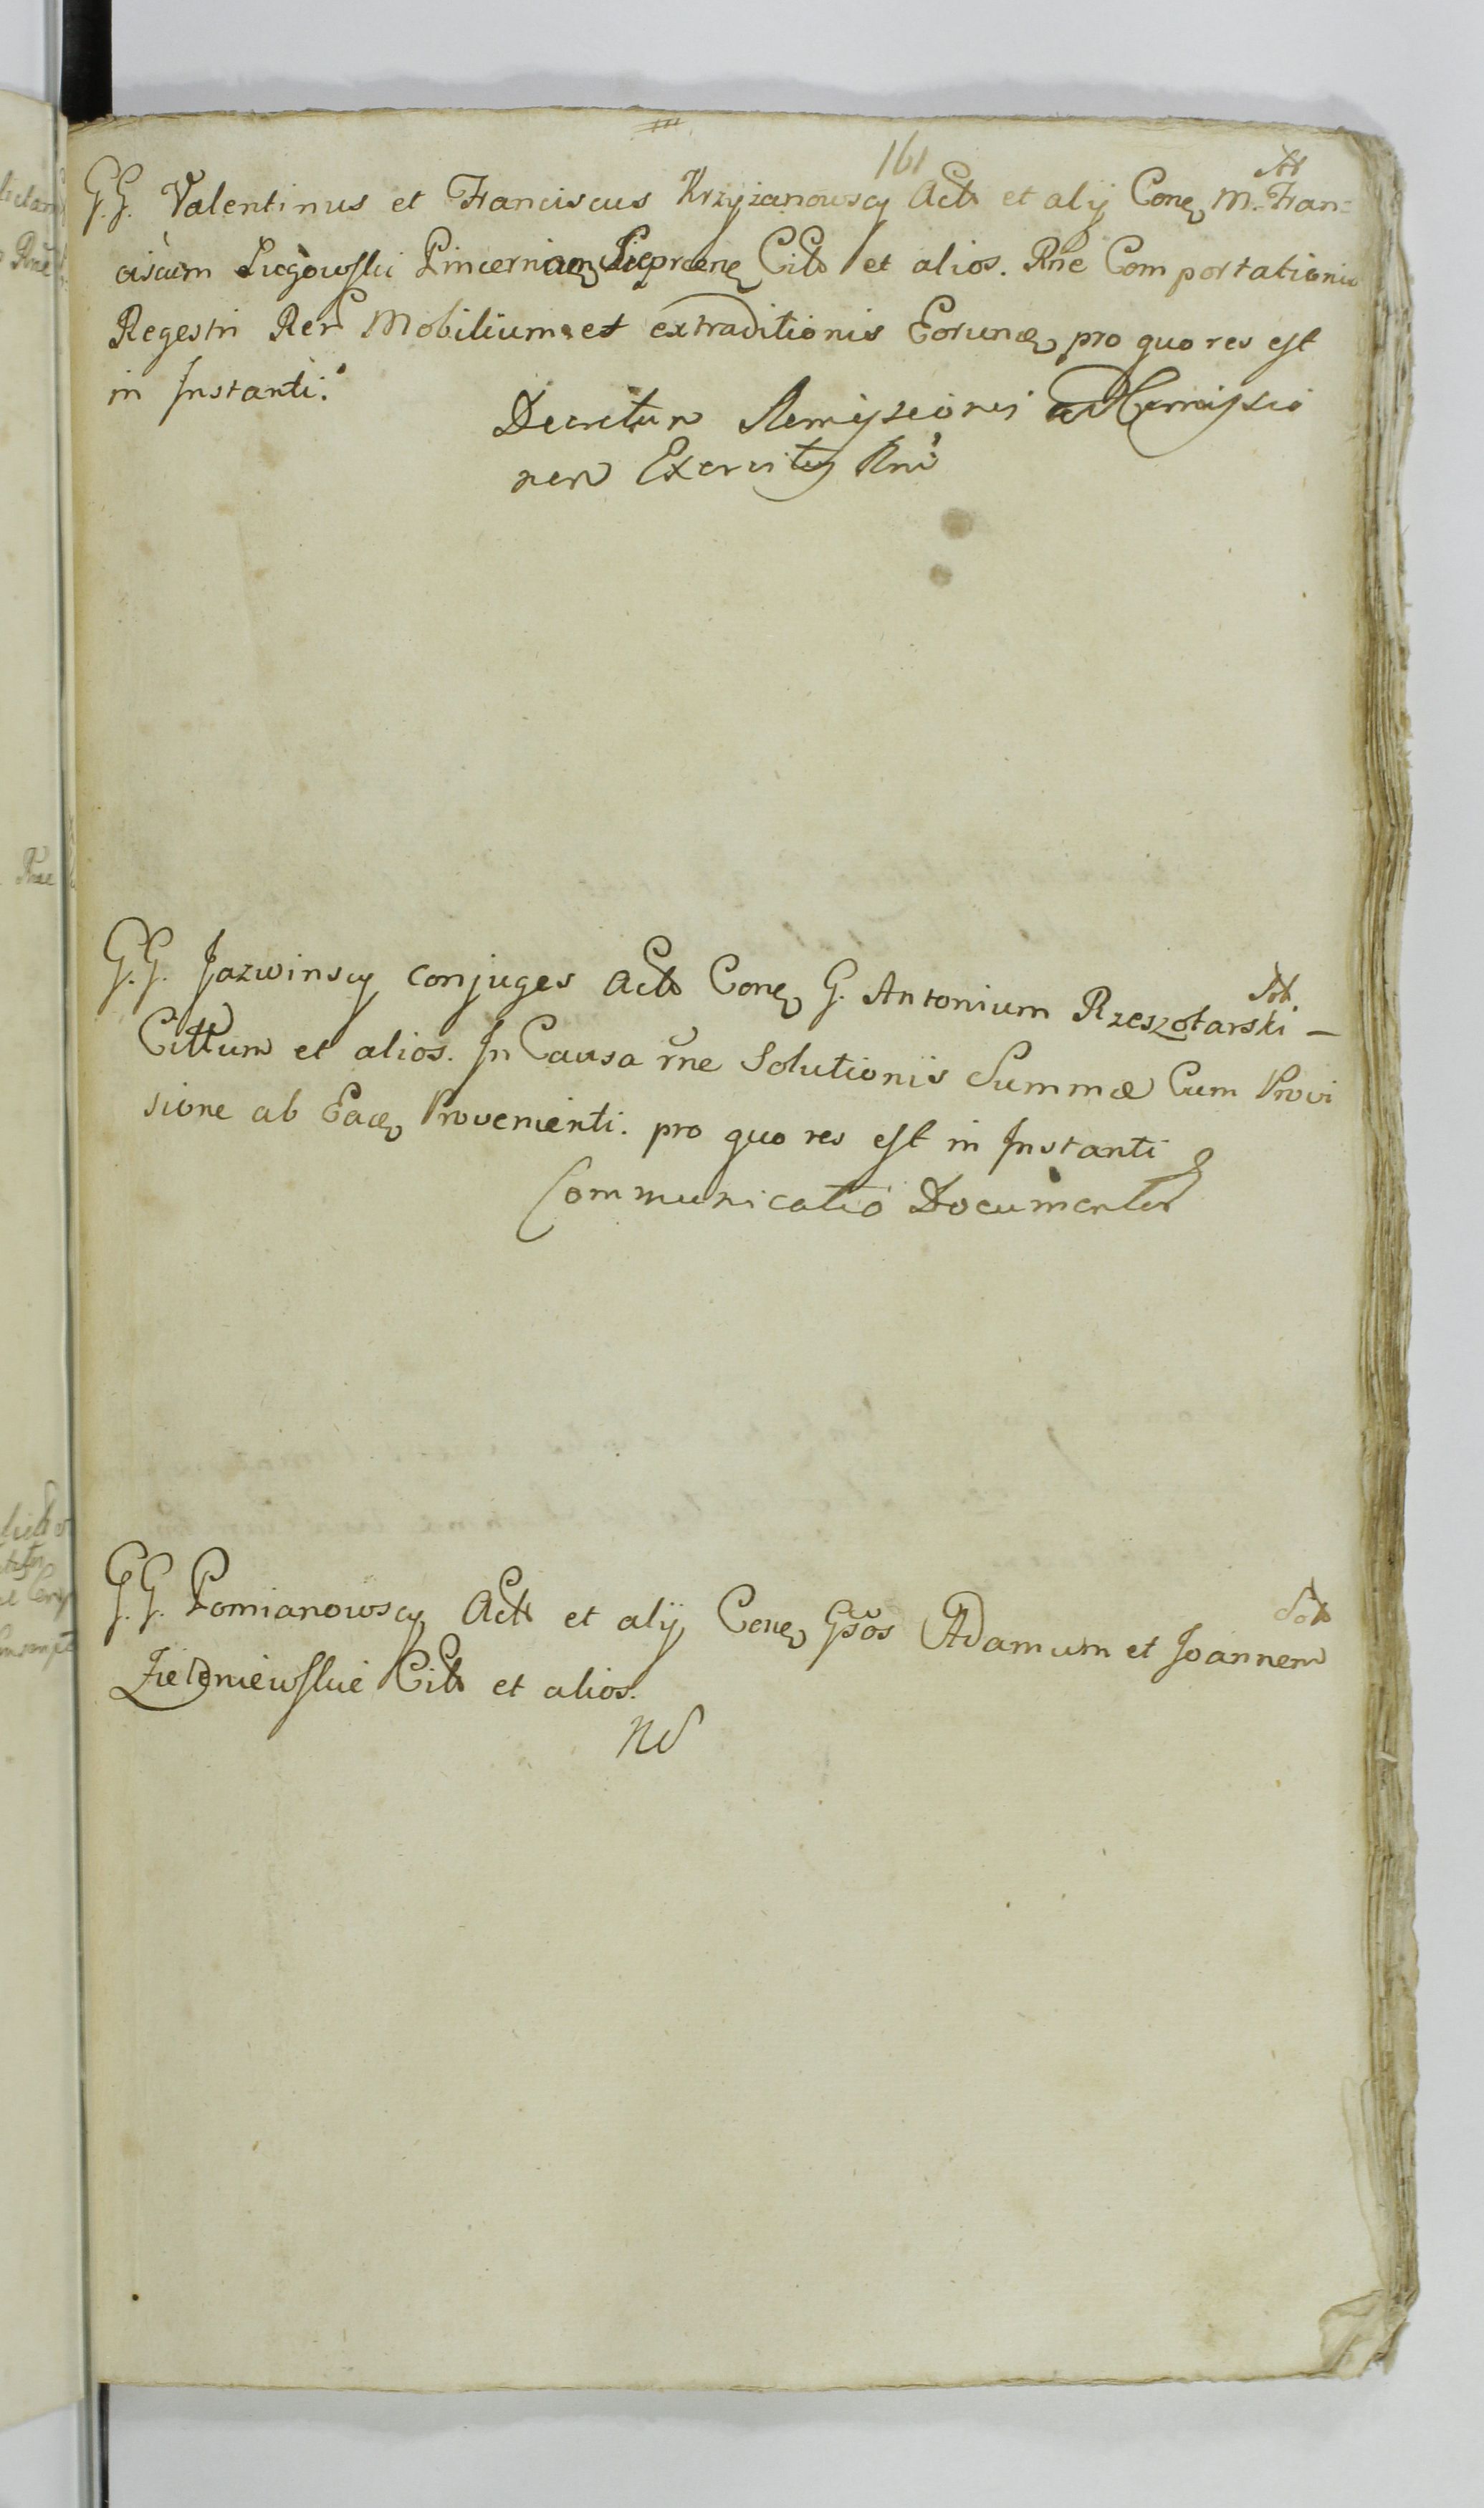 161
G. G. Valentinus et Franciscus Krzyżanowscy Actt et alij Conq M. Fran=
ciscum Ługowski Pincernam Sieprcenq Citt et alios. Rne Comportationis
Regestri Rer Mobilium et extraditionis Eorunq pro quo res est
in Instanti.
Decretum Remissionis ad
nem Exercitus Rni
G. G. Jazwinscy conjuges Actt Conq G. Antonium Rzeszotarski —
Cittum et alios. In Causa rne Solutionis Summæ Cum Provi
sione ab Eaq Provenienti. pro quo res est in Instanti
Communicatio Documentor
G. G. Pomianowscy Actt et alij Conq Gsos Adamum et Joannem
Zieleniewskie Citt et alios.
NS